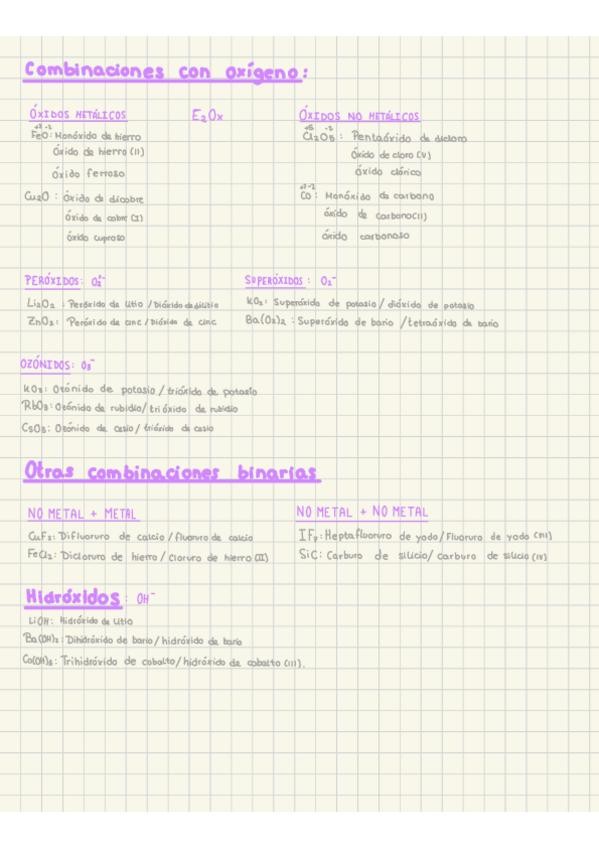 Combinaciones con oxígeno:
ÓXIDOS METÁLICOS
E₂Oₓ
+2 -2
FeO: Monóxido de hierro
Óxido de hierro (II)
óxido ferroso
Cu₂O: óxido de dicobre
óxido de cobre (I)
óxido cuproso
ÓXIDOS NO METÁLICOS
+5 -2
Cl₂O₅: Pentaóxido de dicloro
óxido de cloro (V)
óxido clórico
+2 -2
CO: Monóxido de carbono
óxido de carbono (II)
óxido carbonoso
PERÓXIDOS: O₂²⁻
Li₂O₂: Peróxido de litio / Dióxido de dilitio
ZnO₂: Peróxido de cinc / Dióxido de cinc
SUPERÓXIDOS: O₂⁻
KO₂: Superóxido de potasio / dióxido de potasio
Ba(O₂)₂: Superóxido de bario / tetraóxido de bario
OZÓNIDOS: O₃⁻
KO₃: Ozónido de potasio / trióxido de potasio
RbO₃: Ozónido de rubidio / trióxido de rubidio
CsO₃: Ozónido de cesio / trióxido de cesio
Otras combinaciones binarias
NO METAL + METAL
CaF₂: Difluoruro de calcio / fluoruro de calcio
FeCl₂: Dicloruro de hierro / Cloruro de hierro (II)
NO METAL + NO METAL
IF₇: Heptafluoruro de yodo / Fluoruro de yodo (VII)
SiC: Carburo de silicio / carburo de silicio (IV)
Hidróxidos: OH⁻
LiOH: Hidróxido de litio
Ba(OH)₂: Dihidróxido de bario / hidróxido de bario
Co(OH)₃: Trihidróxido de cobalto / hidróxido de cobalto (III).